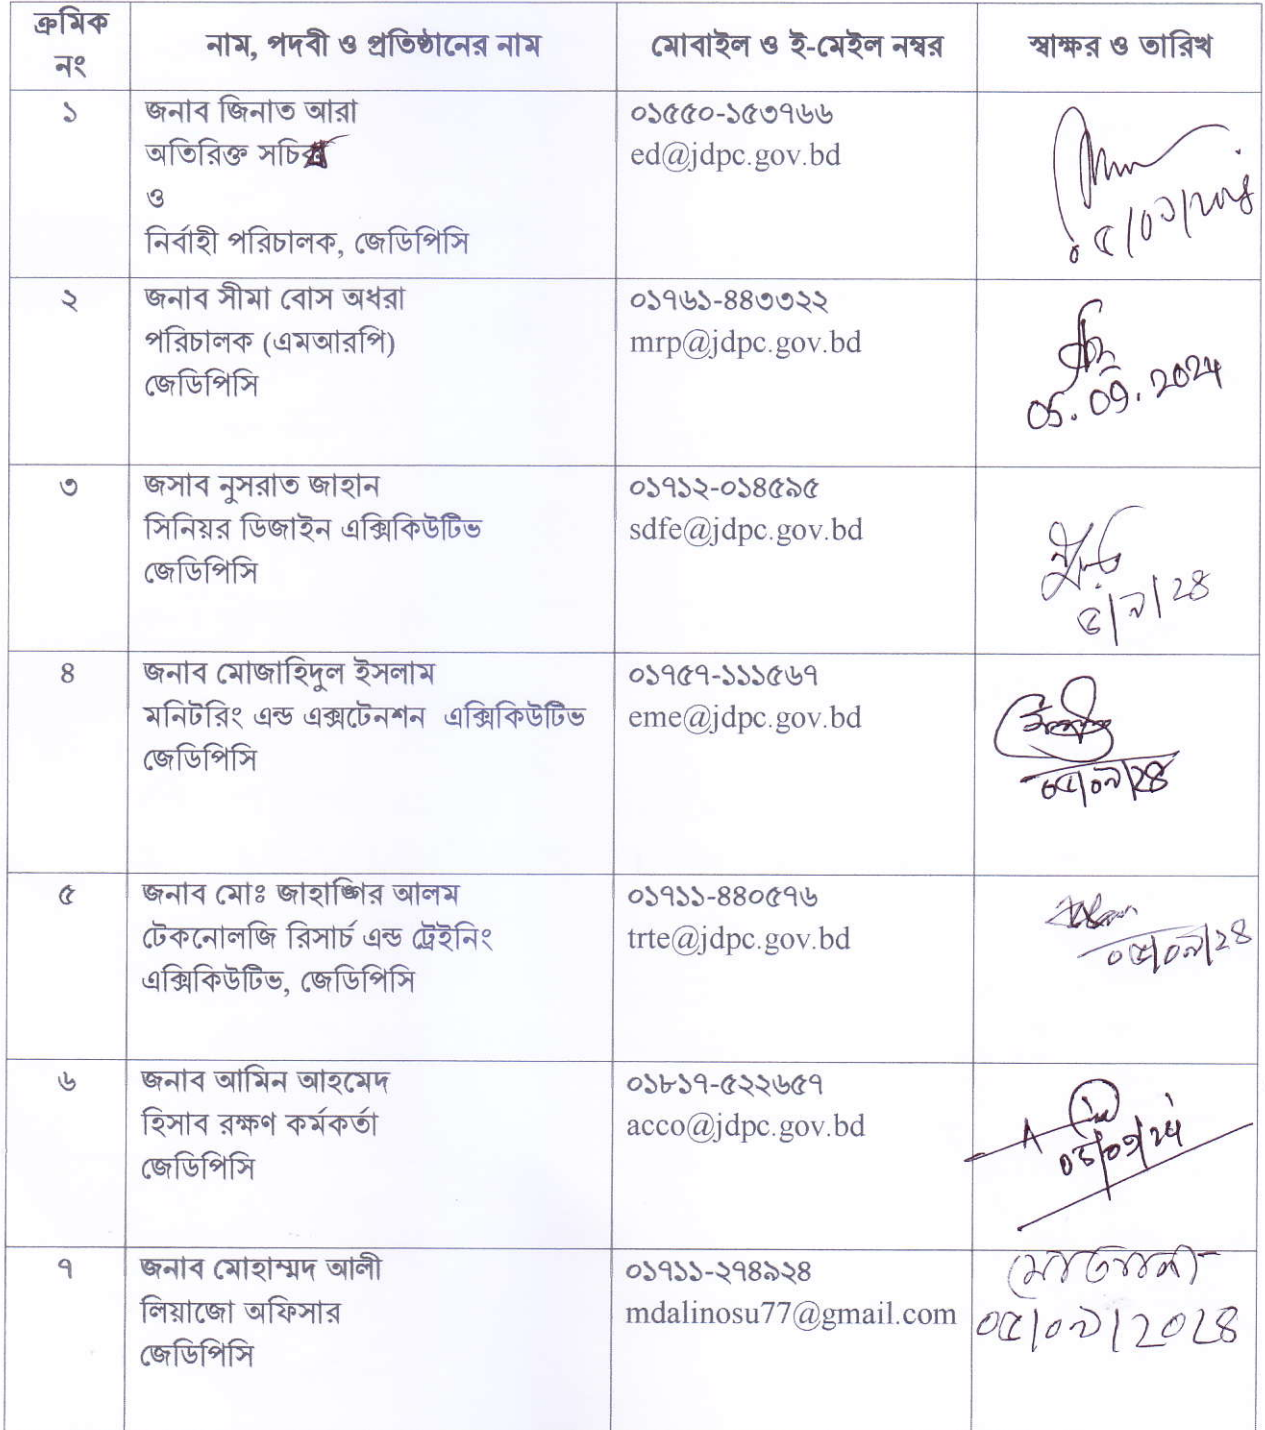 ক্রমিক নং
নাম, পদবী ও প্রতিষ্ঠানের নাম
মোবাইল ও ই-মেইল নম্বর
স্বাক্ষর ও তারিখ
১
জনাব জিনাত আরা
অতিরিক্ত সচিব
ও
নির্বাহী পরিচালক, জেডিপিসি
০১৫৫০-১৫৩৭৬৬
ed@jdpc.gov.bd
২
জনাব সীমা বোস অধরা
পরিচালক (এমআরপি)
জেডিপিসি
০১৭৬১-৪৪৩৩২২
mrp@jdpc.gov.bd
05.09.2024
৩
জসাব নুসরাত জাহান
সিনিয়র ডিজাইন এক্সিকিউটিভ
জেডিপিসি
০১৭১২-০১৪৫৯৫
sdfe@jdpc.gov.bd
৫/৯/২৪
৪
জনাব মোজাহিদুল ইসলাম
মনিটরিং এন্ড এক্সটেনশন এক্সিকিউটিভ
জেডিপিসি
০১৭৫৭-১১১৫৬৭
eme@jdpc.gov.bd
০৫/০৯/২৪
৫
জনাব মোঃ জাহাঙ্গির আলম
টেকনোলজি রিসার্চ এন্ড ট্রেইনিং
এক্সিকিউটিভ, জেডিপিসি
০১৭১১-৪৪০৫৭৬
trte@jdpc.gov.bd
০৫/০৯/২৪
৬
জনাব আমিন আহমেদ
হিসাব রক্ষণ কর্মকর্তা
জেডিপিসি
০১৮১৭-৫২২৬৫৭
acco@jdpc.gov.bd
05/09/24
৭
জনাব মোহাম্মদ আলী
লিয়াজো অফিসার
জেডিপিসি
০১৭১১-২৭৪৯২৪
mdalinosu77@gmail.com
০৫/০৯/২০২৪